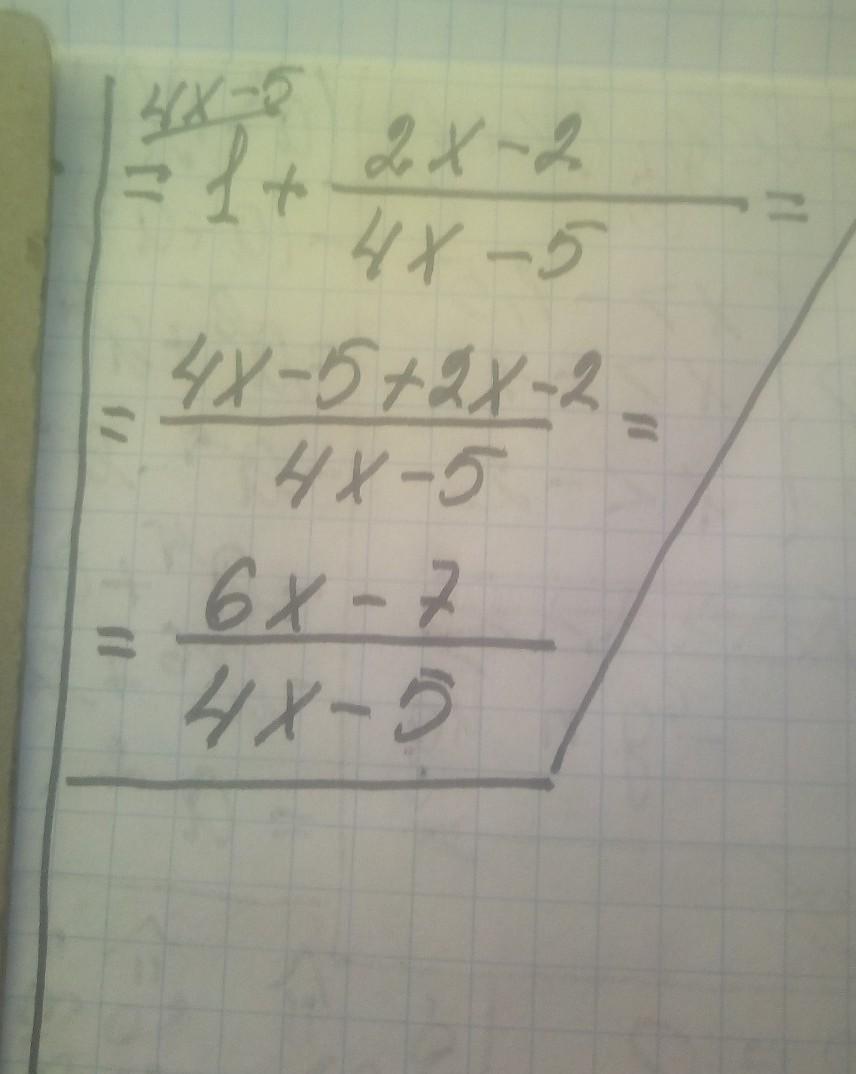 4x-5
= 1 + \frac{2x-2}{4x-5} =
= \frac{4x-5+2x-2}{4x-5} =
= \frac{6x-7}{4x-5}